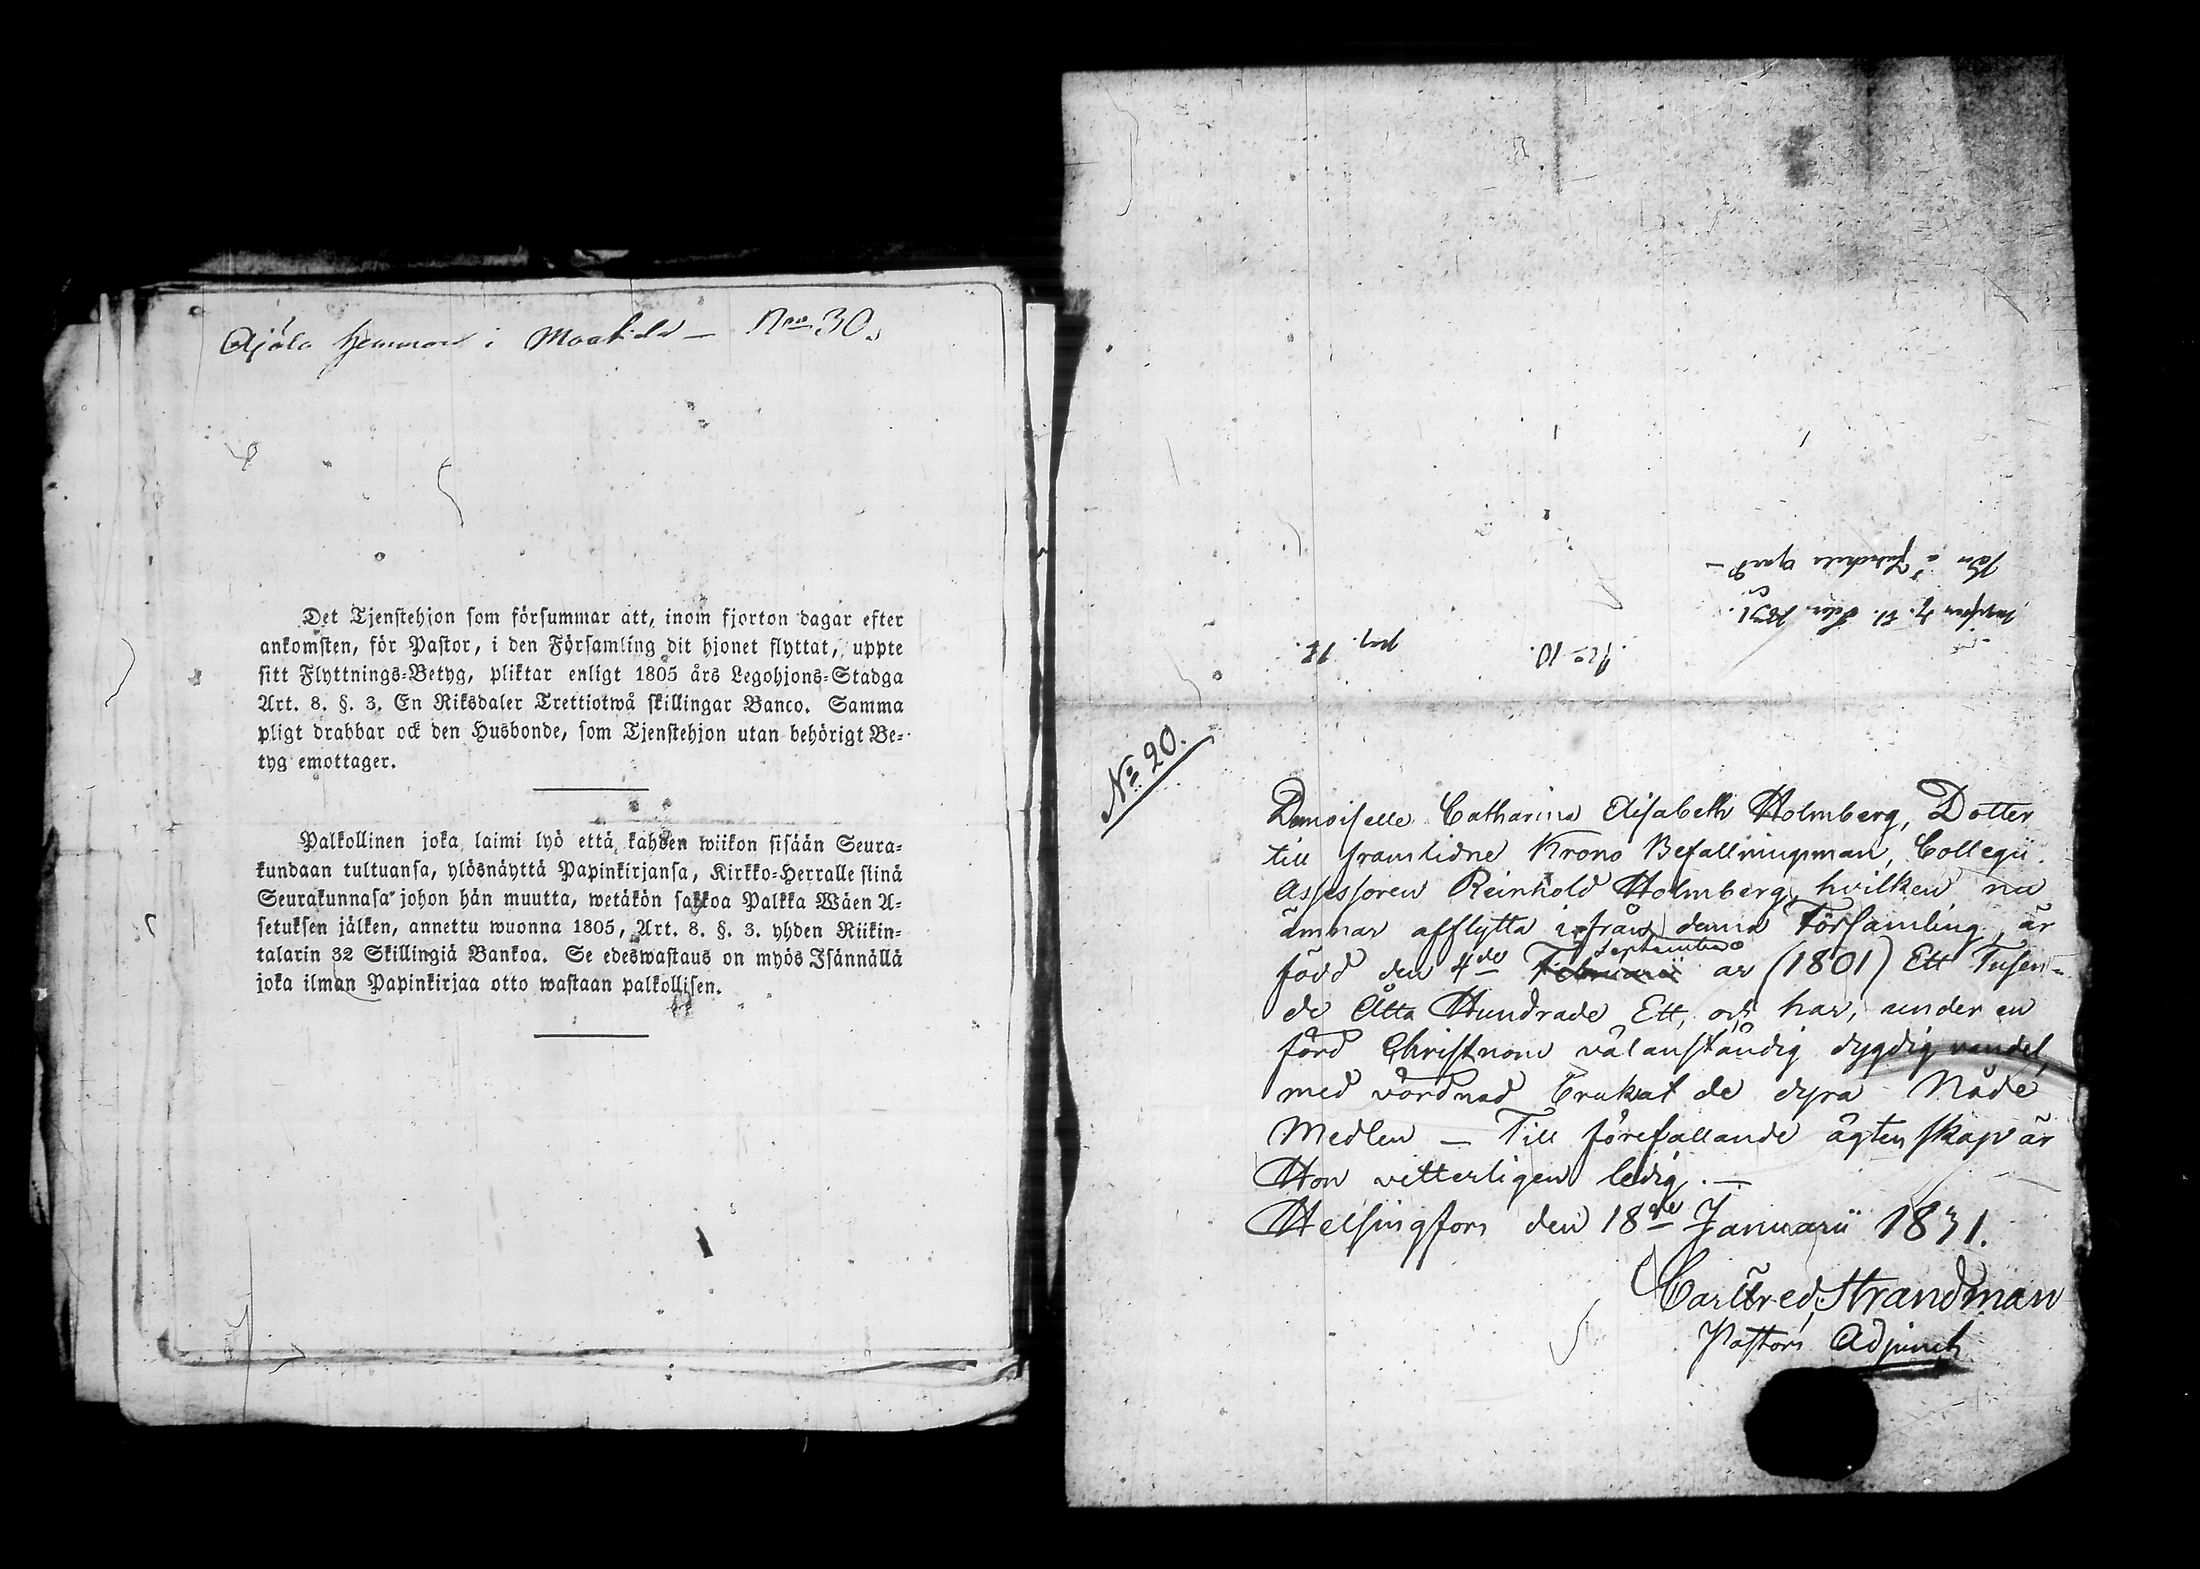 Ajála hemman i Maakela — Nro 30.
Det Tjenstehjon som försummar att, inom fjorton dagar efter
ankomsten, för Pastor, i den Församling dit hjonet flyttat, uppte
sitt Flyttnings-Betyg, pliktar enligt 1805 års Legohjons-Stadga
Art. 8. §. 3. En Riksdaler Trettiotwå skillingar Banco. Samma
pligt drabbar ock den Husbonde, som Tjenstehjon utan behörigt Be-
tyg emottager.
Palkollinen joka laimi lyö että kahden wiikon sisään Seura-
kundaan tultuansa, ylösnäyttä Papinkirjansa, Kirkko-Herralle siinä
Seurakunnasa johon hän muutta, wetäkön sakkoa Palkka Wäen A-
setuksen jälken, annettu wuonna 1805, Art. 8. §. 3. yhden Riikin-
talarin 32 Skillingiä Bankoa. Se edeswastaus on myös Isännällä
joka ilman Papinkirjaa otto wastaan palkollisen.
d. 11. Febr. 1831.
Nro 10.
pag. 12.
No 20.
Demoiselle Catharina Elisabeth Holmberg, Dotter
till framlidne Krono Befallningsman, Collegii
Assessoren Reinhold Holmberg, hvilken nu
ämnar afflytta ifrån denna Församling, är
född den 4de Februarii Septembr. år (1801) Ett Tusen-
de Åtta Hundrade Ett, och har, under en
förd Christnom välanständig dygdig vandel,
med vördnad brukat de dyra Nåde
Medlen — Till förefallande ägtenskap är
Hon vitterligen ledig. —
Helsingfors den 18de Januarii 1831.
Carl Fred. Strandman
Pastors Adjunct